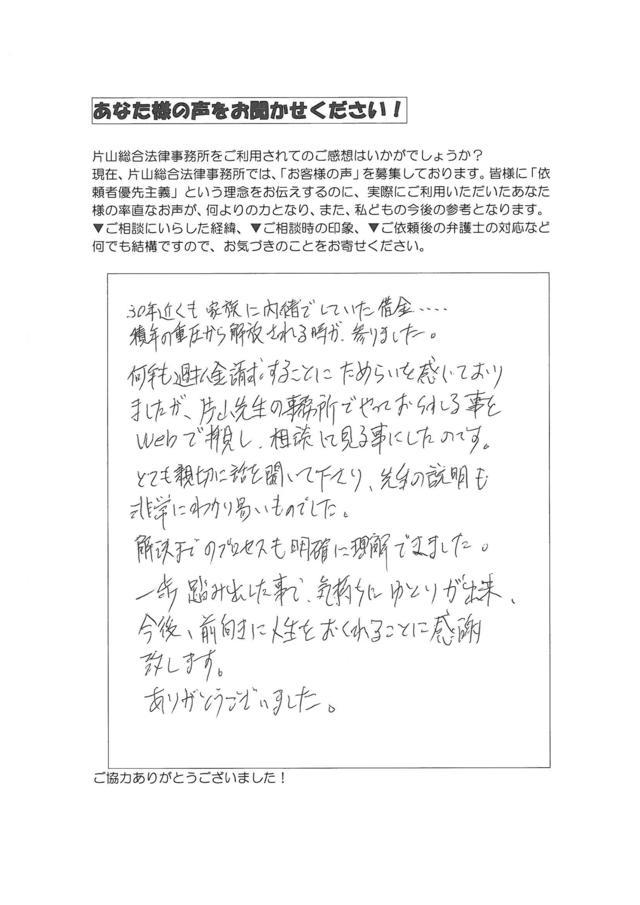 あなた様の声をお聞かせください！
片山総合法律事務所をご利用されてのご感想はいかがでしょうか？
現在、片山総合法律事務所では、「お客様の声」を募集しております。皆様に「依
頼者優先主義」という理念をお伝えするのに、実際にご利用いただいたあなた
様の率直なお声が、何よりの力となり、また、私どもの今後の参考となります。
▼ご相談にいらした経緯、▼ご相談時の印象、▼ご依頼後の弁護士の対応など
何でも結構ですので、お気づきのことをお寄せください。
30年近くも家族に内緒でしていた借金‥‥
積年の重圧から解放される時が、参りました。
何年も過払金請求することにためらいを感じており
ましたが、片山先生の事務所でやっておられる事を
Webで拝見し、相談して見る事にしたのです。
とても親切に話を聞いて下さり、先生の説明も
非常にわかり易いものでした。
解決までのプロセスも明確に理解できました。
一歩踏み出した事で、気持ちにゆとりが出来、
今後、前向きに人生をおくれることに感謝
致します。
ありがとうございました。
ご協力ありがとうございました！